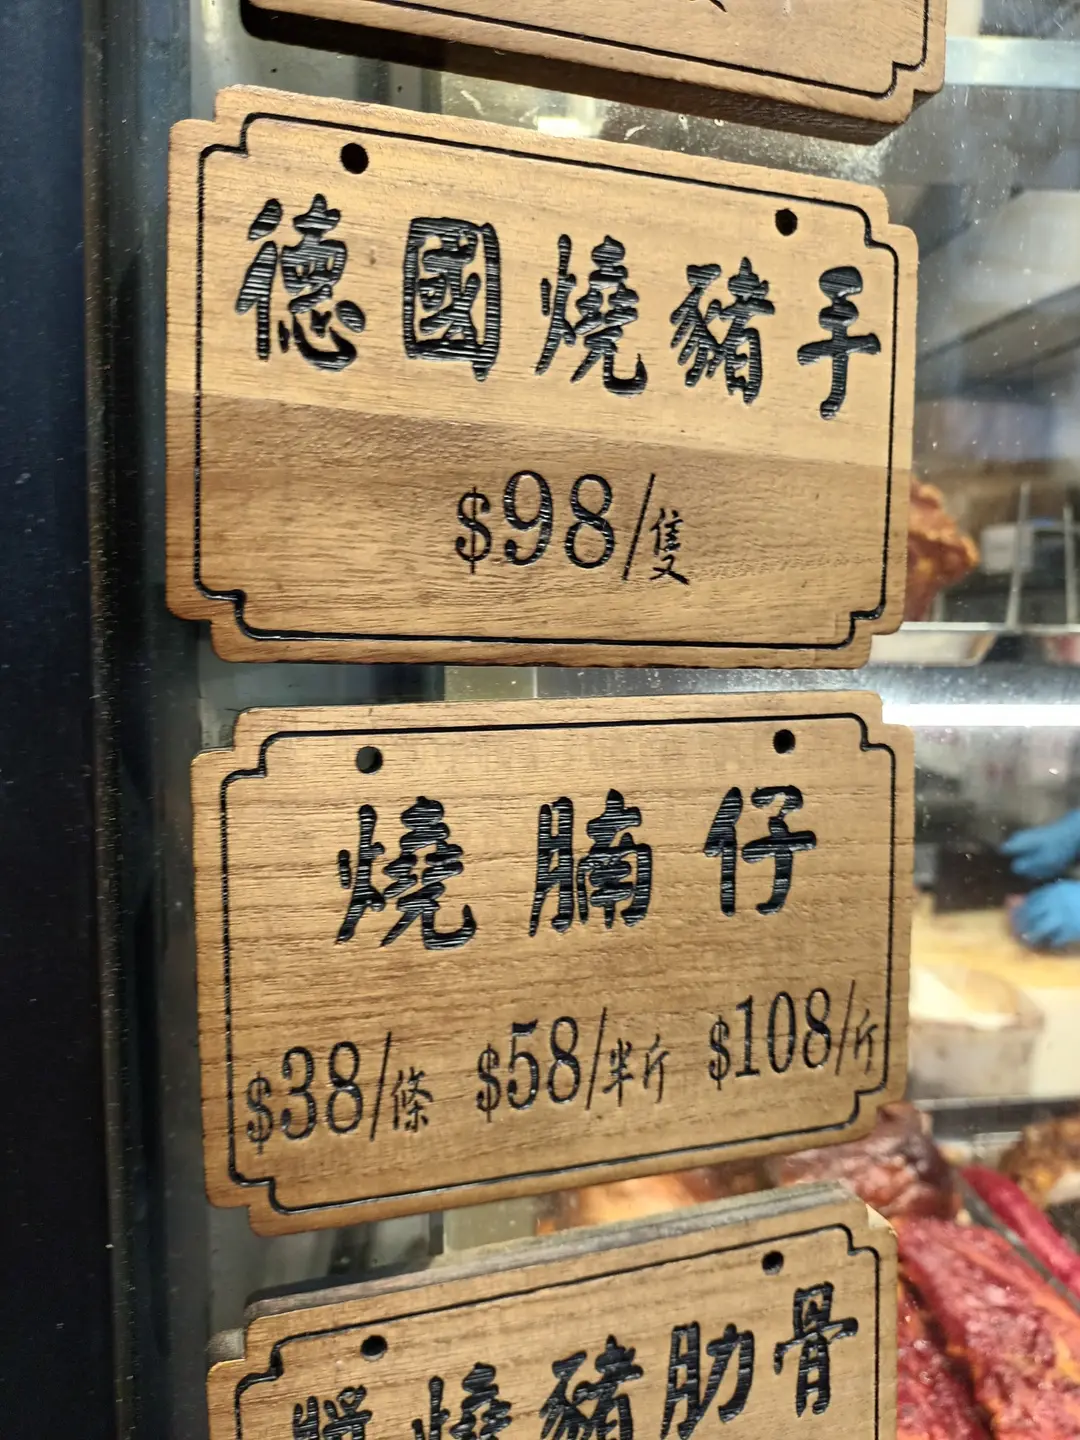 德國燒豬手
$98/隻
燒腩仔
$38/條 $58/半斤 $108/斤
燒豬肋骨